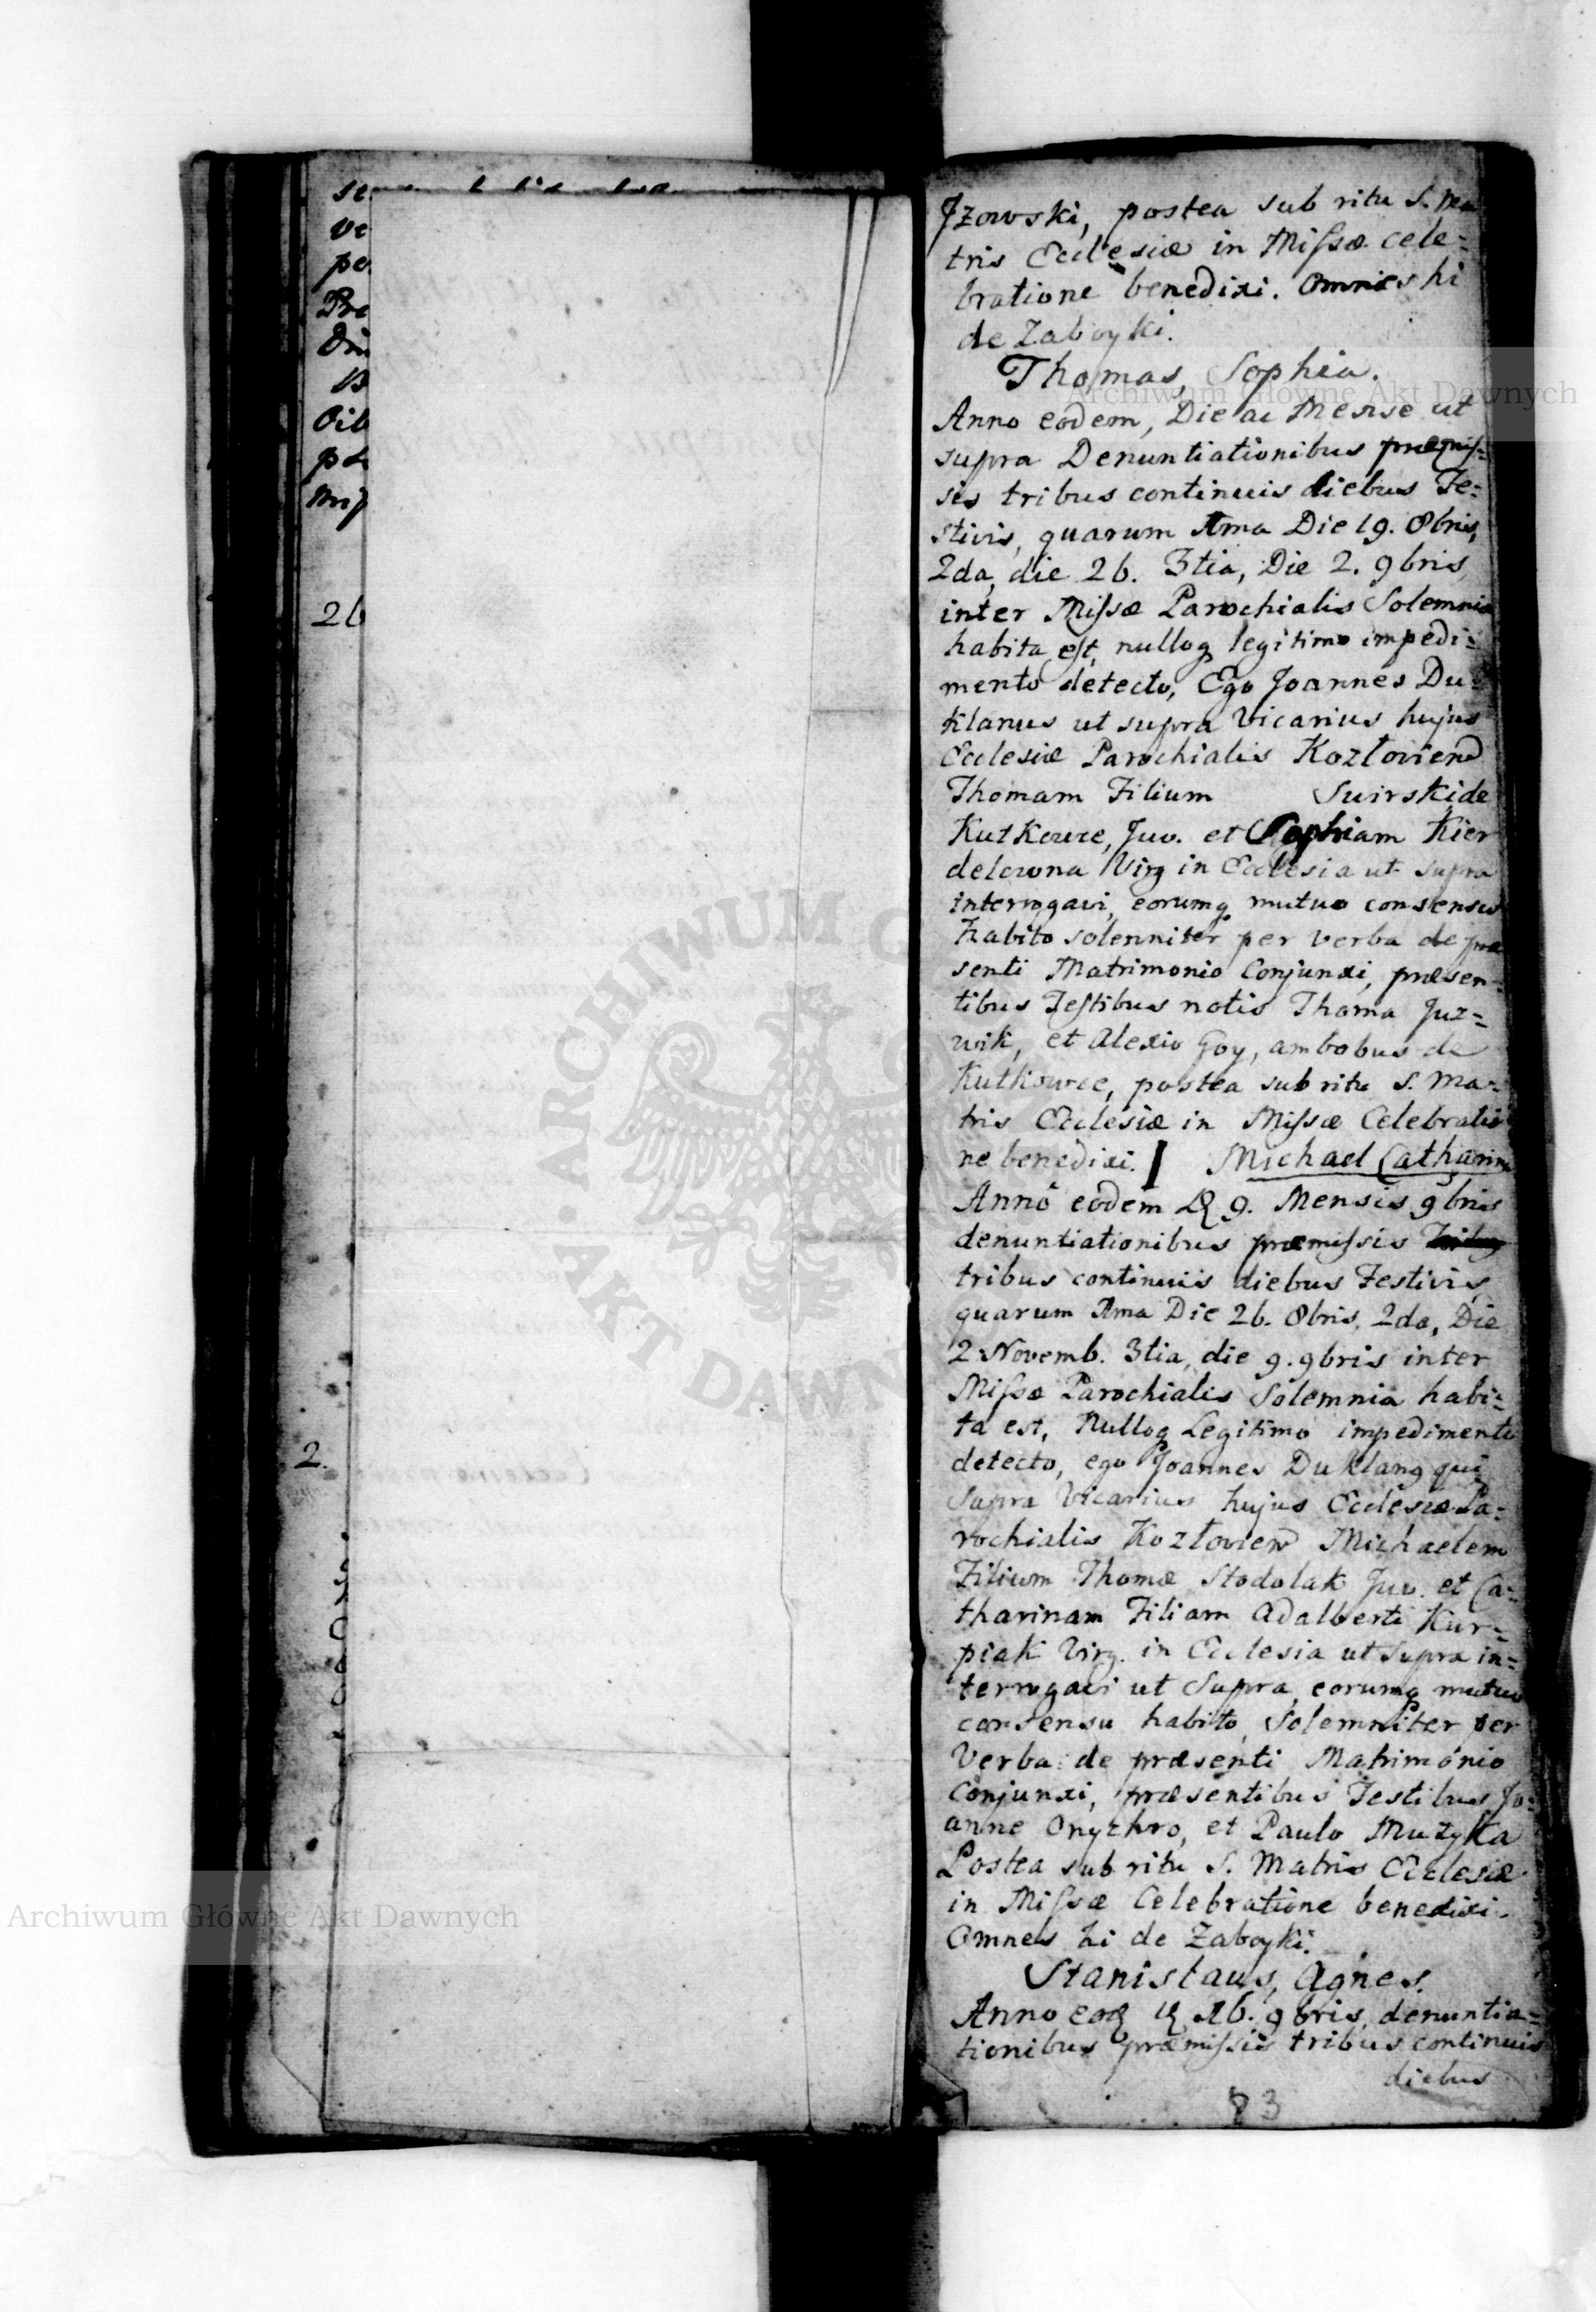 se
ve
pe
Pre
Oib
26
2.
Jzowski, postea sub ritu S. Ma
tris Ecclesiæ in Missæ cele=
bratione benedixi. Omnes hi
de Zaboyki.
Thomas, Sophia.
Anno eodem, Die ac Mense ut
supra Denuntiationibus præmis=
sis tribus continuis diebus Fe=
stivis, quarum 1ma Die 19. 8bris,
2da, die 26. 3tia, Die 2. 9bris,
inter Missæ Parochialis Solemnia
habita est, nulloq legitimo impedi=
mento detecto, Ego Joannes Du=
klanus ut supra Vicarius hujus
Ecclesiæ Parochialis Kozłovien
Thomam Filium Swirski de
Kutkowce, Juv. et Sophiam Kier
delowna Virg in Ecclesia ut supra
interrogavi, eorumq mutuo consensu
habito solenniter per verba de præ
senti Matrimonio Conjunxi, præsen=
tibus Testibus notis Thoma Juz=
wik, et Alexio Goy, ambobus de
Kutkowce, postea sub ritu S. Ma=
tris Ecclesiæ in Missæ Celebratio
ne benedixi. Michael Catharina
Anno eodem D 9. Mensis 9bris
denuntiationibus præmissis
tribus continuis diebus Festivis,
quarum 1ma Die 26. 8bris, 2da, Die
2 Novemb. 3tia, die 9. 9bris inter
Missæ Parochialis Solemnia habi=
ta est, Nulloq Legitimo impedimento
detecto, ego Joannes Duklan9 qui
Supra Vicarius hujus Ecclesiæ Pa=
rochialis Kozłovien Michaelem
Filium Thomæ Stodolak Juv. et Ca=
tharinam Filiam Adalberti Kur=
piak Virg. in Ecclesia ut Supra in=
terrogavi ut Supra, eorumq mutuo
consensu habito, Solemniter per
Verba de præsenti Matrimónio
Conjunxi, præsentibus Testibus Jo=
anne Onyzkro, et Paulo Muzyka
Postea sub ritu S. Matris Ecclesiæ
in Missæ Celebratione benedixi.
Omnes hi de Zaboyki.
Stanislaus, Agnes.
Anno eod D 16. 9bris, denuntia=
tionibus præmissis tribus continuis
diebus
83
Archiwum Główne Akt Dawnych
Archiwum Główne Akt Dawnych
ARCHIWUM G
AKT DAWN